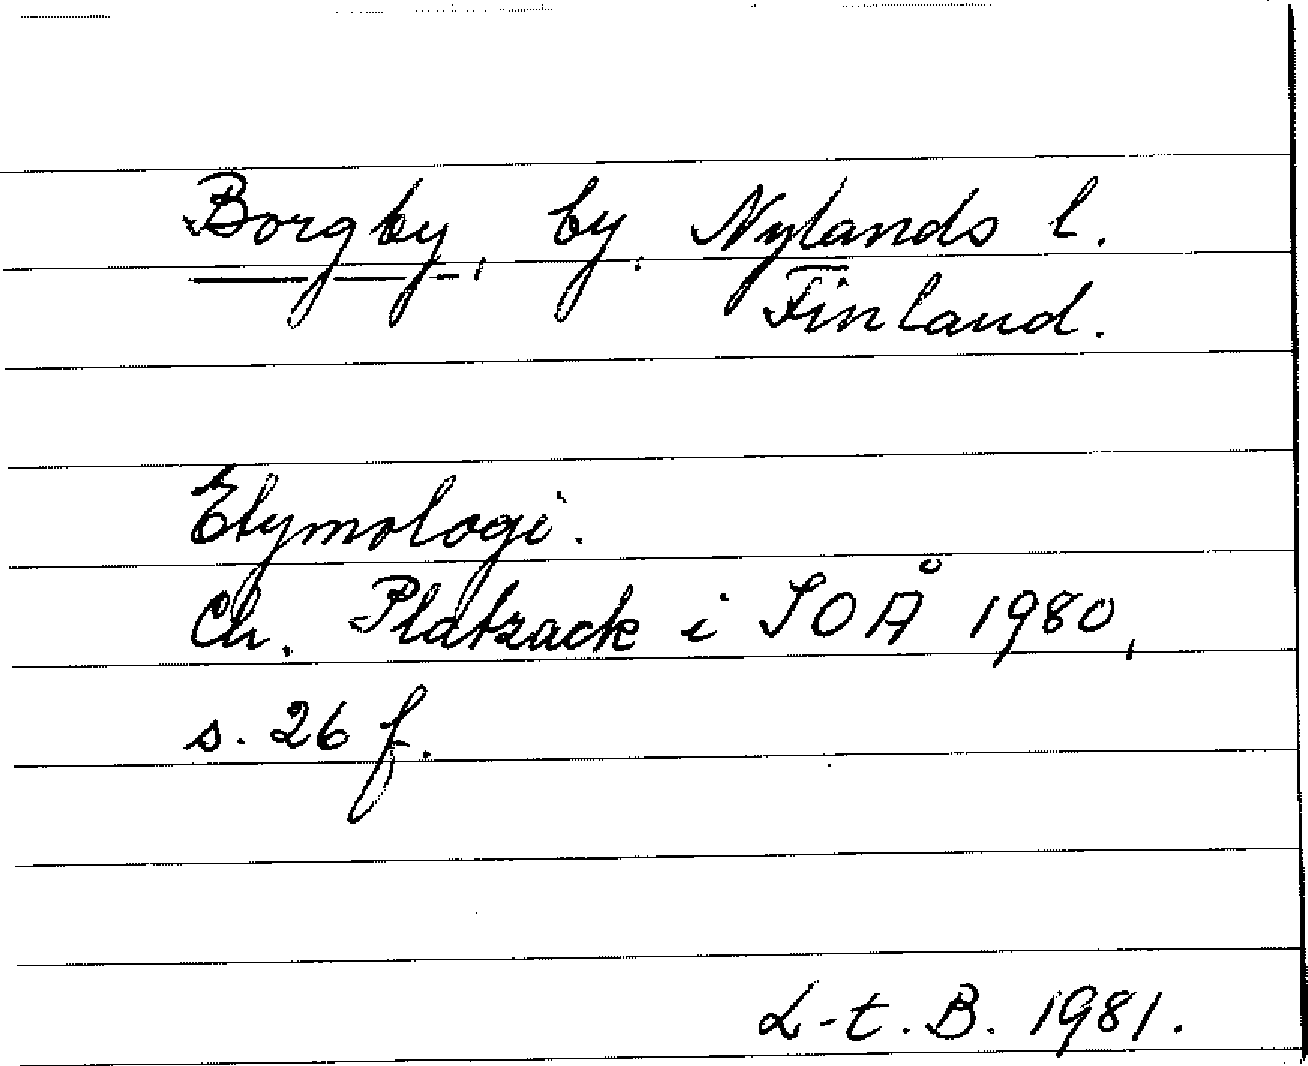 Borgby, by, Nylands l.
Finland.
Etymologi.
Ch. Platzack i SOÅ 1980,
s. 26 f.
L-t. B. 1981.